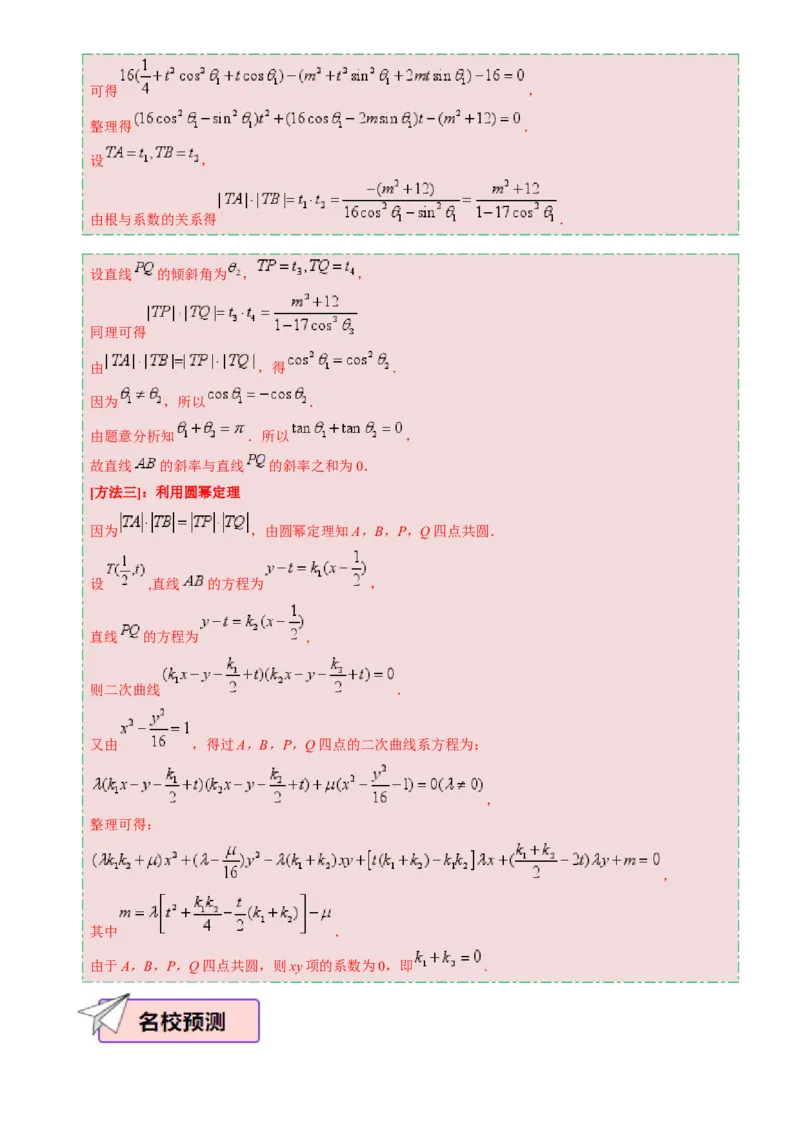 可得16(1/4+t²cos²θ₁+tcosθ₁)−(m²+t²sin²θ₁+2mtsinθ₁)−16=0，
整理得(16cos²θ₁−sin²θ₁)t²+(16cosθ₁−2msinθ₁)t−(m²+12)=0.
设TA=t₁,TB=t₂，
由根与系数的关系得|TA|·|TB|=t₁·t₂=−(m²+12)/(16cos²θ₁−sin²θ₁)=(m²+12)/(1−17cos²θ₁).
设直线PQ的倾斜角为θ₂，TP=t₃,TQ=t₄，
同理可得|TP|·|TQ|=t₃·t₄=(m²+12)/(1−17cos²θ₂)
由|TA|·|TB|=|TP|·|TQ|，得cos²θ₁=cos²θ₂.
因为θ₁≠θ₂，所以cosθ₁=−cosθ₂.
由题意分析知θ₁+θ₂=π．所以tanθ₁+tanθ₂=0，
故直线AB的斜率与直线PQ的斜率之和为0.
[方法三]：利用圆幂定理
因为|TA|·|TB|=|TP|·|TQ|，由圆幂定理知A，B，P，Q四点共圆.
设T(1/2,t),直线AB的方程为y−t=k₁(x−1/2)，
直线PQ的方程为y−t=k₂(x−1/2)，
则二次曲线(k₁x−y−k₁/2+t)(k₂x−y−k₂/2+t)=0.
又由x²−y²/16=1，得过A，B，P，Q四点的二次曲线系方程为：
λ(k₁x−y−k₁/2+t)(k₂x−y−k₂/2+t)+μ(x²−y²/16−1)=0(λ≠0)，
整理可得：
(λk₁k₂+μ)x²+(λ−μ/16)y²−λ(k₁+k₂)xy+[t(k₁+k₂)−k₁k₂]λx+((k₁+k₂)/2−2t)λy+m=0，
其中m=λ[t²+k₁k₂/4−t/2(k₁+k₂)]−μ.
由于A，B，P，Q四点共圆，则xy项的系数为0，即k₁+k₂=0.
名校预测